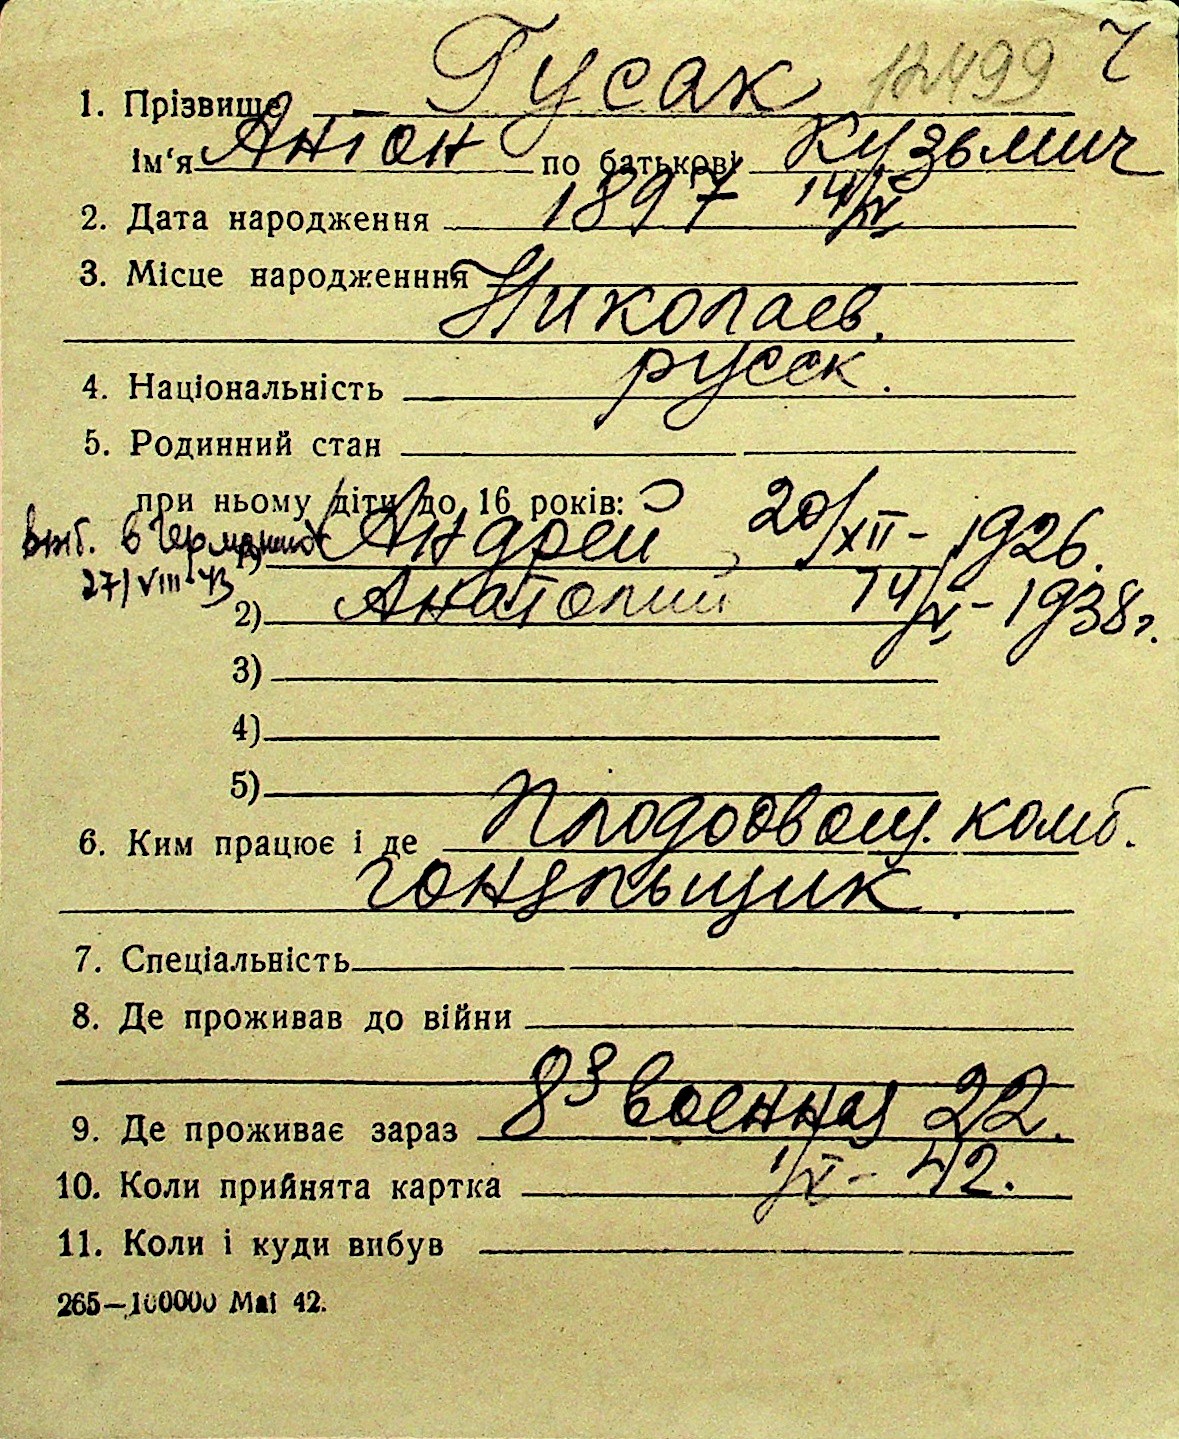 12499 Ч
1. Прізвище Гусак
Ім'я Антон по батькові Кузьмич
2. Дата народження 1897 14/IV
3. Місце народженння
Николаев.
4. Національність русск.
5. Родинний стан
при ньому діти до 16 років:
выб. в Германию 1) Андрей, 20/XII - 1926.
27/VIII 43
2) Анатолий 14/V - 1938 г.
3)
4)
5)
6. Ким працює і де Плодоовощ. комб.
7. Спеціальність
8. Де проживав до війни
9. Де проживає зараз 8я военная 22.
10. Коли прийнята картка 1/X - 42.
11. Коли і куди вибув
265—100000 Mai 42.